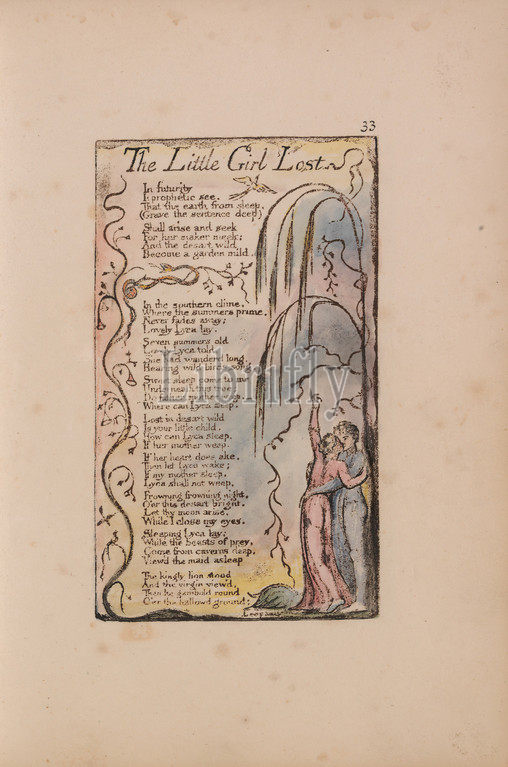 33
The Little Girl Lost
In futurity
I prophetic see,
That the earth from sleep,
(Grave the sentence deep)
Shall arise and seek
For her maker meek:
And the desart wild
Become a garden mild.
In the southern clime,
Where the summers prime,
Never fades away;
Lovely Lyca lay.
Seven summers old
Lovely Lyca told,
She had wanderd long,
Hearing wild birds song.
Sweet sleep come to me
Underneath this tree;
Do father, mother weep,
Where can Lyca sleep.
Lost in desart wild
Is your little child.
How can Lyca sleep,
If her mother weep.
If her heart does ake,
Then let Lyca wake;
If my mother sleep,
Lyca shall not weep.
Frowning frowning night,
O'er this desart bright,
Let thy moon arise,
While I close my eyes.
Sleeping Lyca lay;
While the beasts of prey,
Come from caverns deep,
View'd the maid asleep
The kingly lion stood
And the virgin view'd,
Then he gambold round
O'er the hallowd ground:
Leopards
Librifly